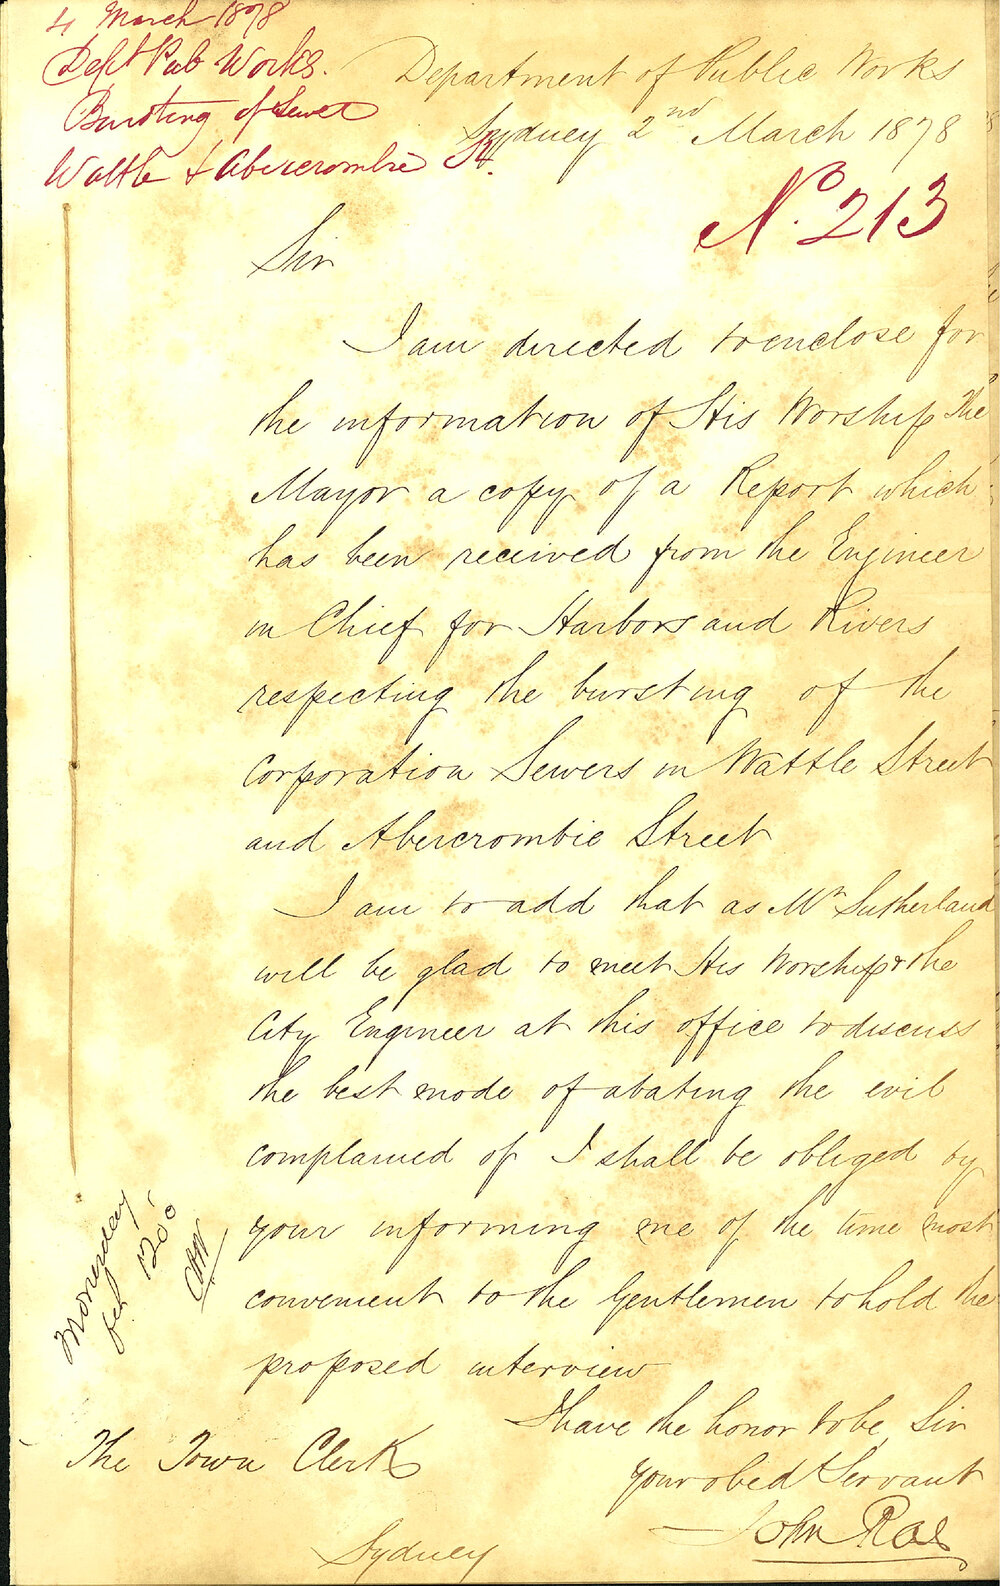 4 March 1878
Dept Pub Works.
Bursting of Sewer
Wattle & Abercrombie St.
Department of Public Works
Sydney 2nd March 1878
No. 213
Sir
I am directed to enclose for
the information of His Worship The
Mayor a copy of a Report which
has been received from the Engineer
in Chief for Harbors and Rivers
respecting the bursting of the
Corporation Sewers in Wattle Street
and Abercrombie Street
I am to add that as Mr Sutherland
will be glad to meet His Worship & the
City Engineer at this office to discuss
the best mode of abating the evil
complained of I shall be obliged by
your informing me of the time most
convenient to the Gentlemen to hold the
proposed interview
I have the honor to be Sir
your obed Servant
John Rae
The Town Clerk
Sydney
Monenday